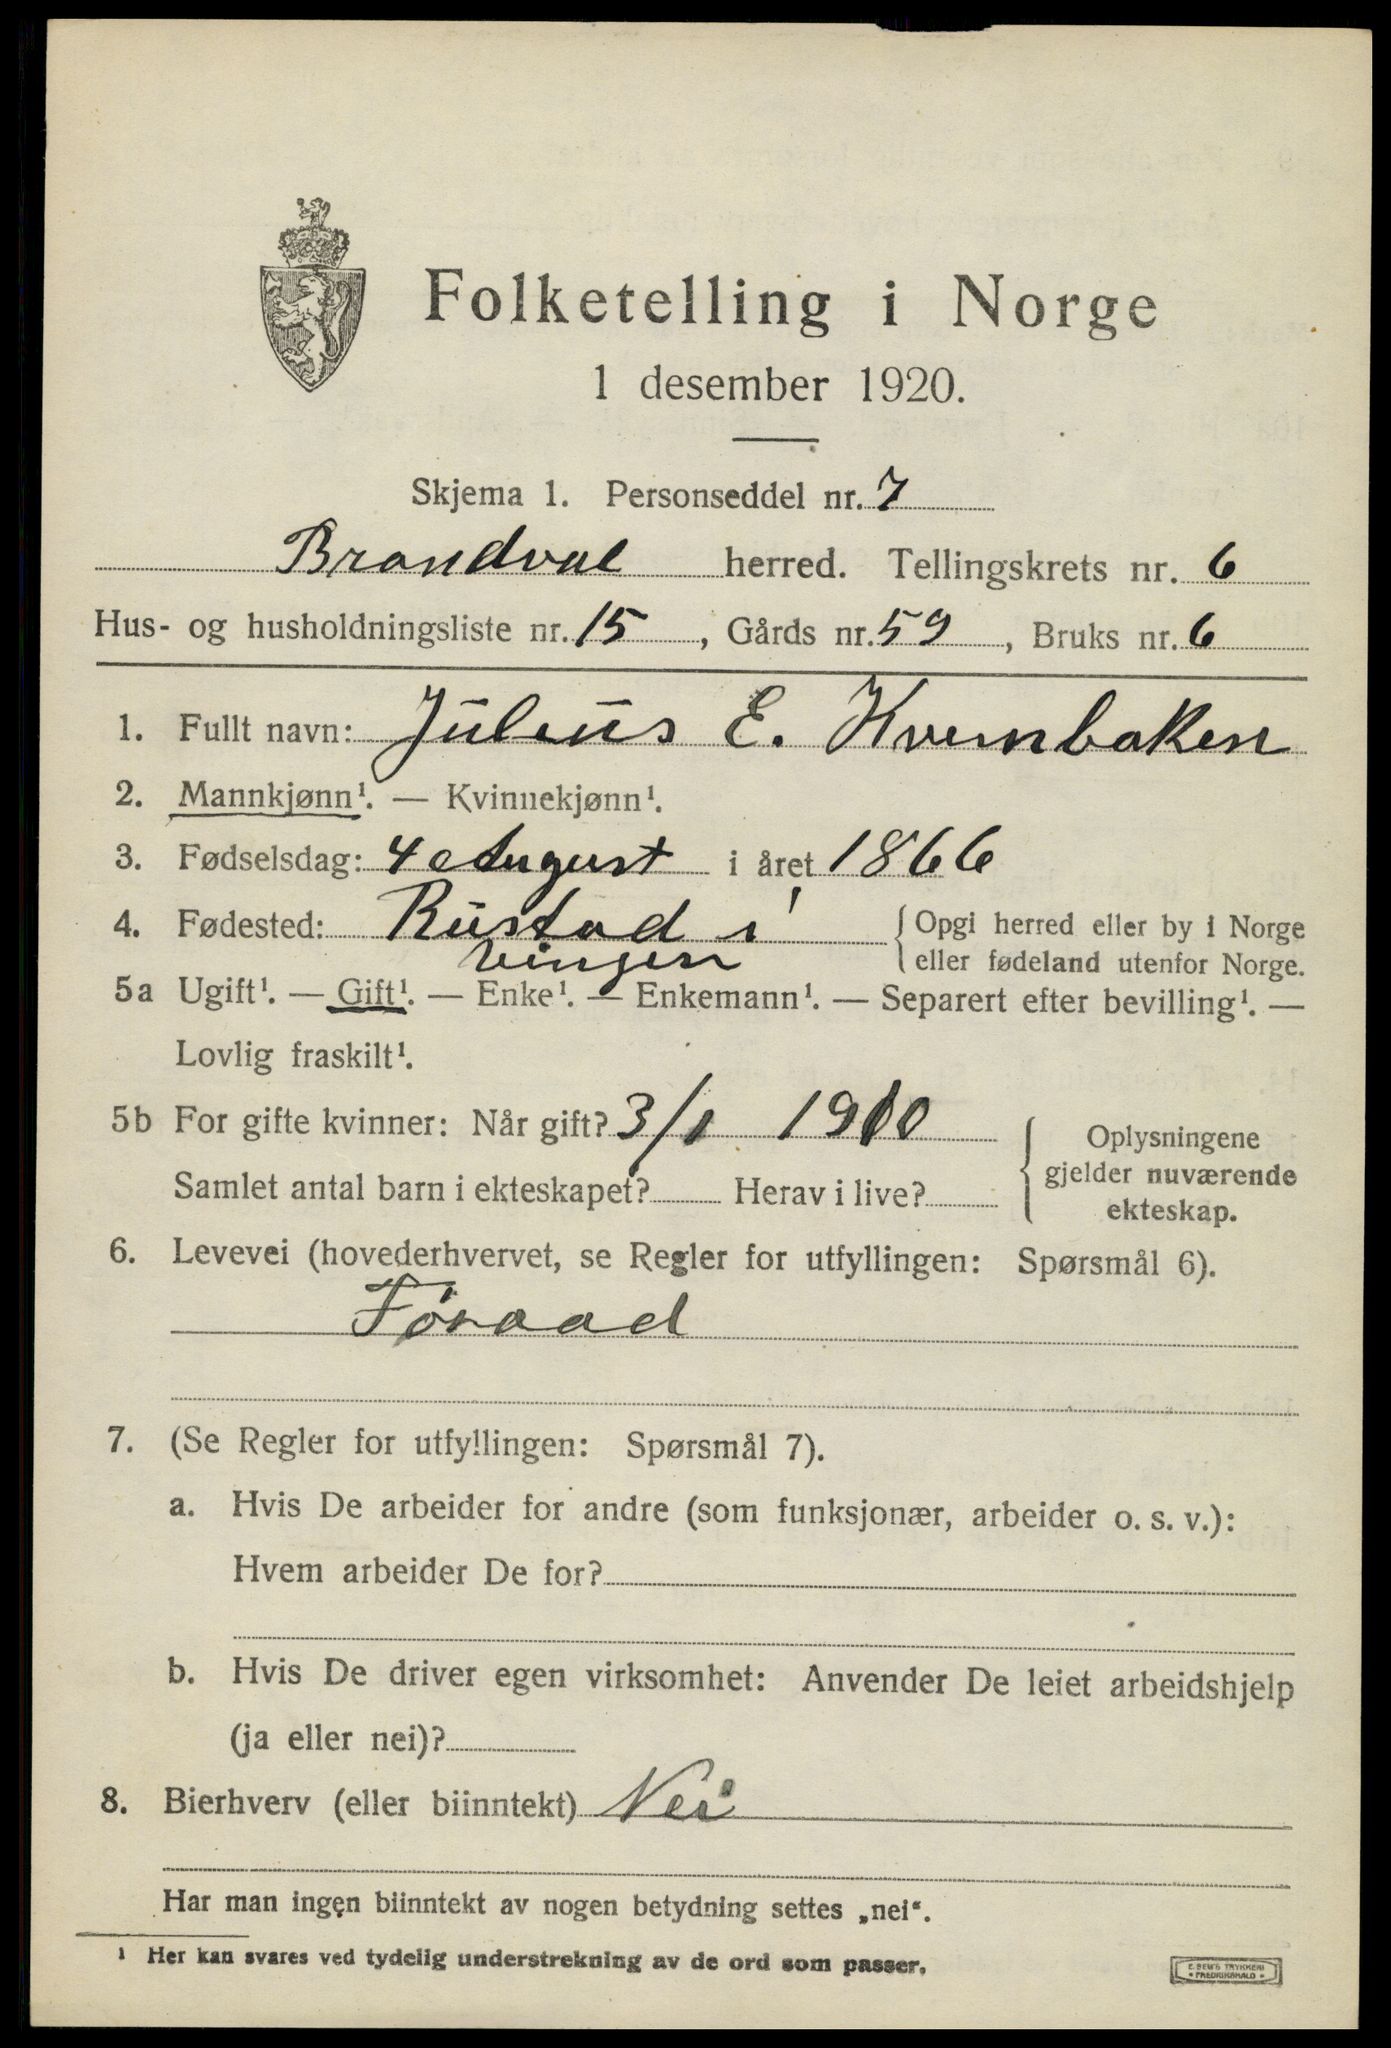 Folketelling i Norge
1 desember 1920.
Skjema 1. Personseddel nr. 7
Brandval herred. Tellingskrets nr. 6
Hus- og husholdningsliste nr. 15, Gårds nr. 59, Bruks nr. 6
1. Fullt navn: Julius E. Kvernbaken
2. Mannkjønn¹. — Kvinnekjønn¹.
3. Fødselsdag: 4 August i året 1866
4. Fødested: Rustad i { Opgi herred eller by i Norge
Vinger eller fødeland utenfor Norge.
5a Ugift¹. — Gift¹. — Enke¹. — Enkemann¹. — Separert efter bevilling¹. —
Lovlig fraskilt¹.
5b For gifte kvinner: Når gift? 3/1 1910
Samlet antal barn i ekteskapet? Herav i live?
Oplysningene
gjelder nuværende
ekteskap.
6. Levevei (hovederhvervet, se Regler for utfyllingen: Spørsmål 6).
Føraad
7. (Se Regler for utfyllingen: Spørsmål 7).
a. Hvis De arbeider for andre (som funksjonær, arbeider o. s. v.):
Hvem arbeider De for?
b. Hvis De driver egen virksomhet: Anvender De leiet arbeidshjelp
(ja eller nei)?
8. Bierhverv (eller biinntekt) Nei
Har man ingen biinntekt av nogen betydning settes „nei“.
¹ Her kan svares ved tydelig understrekning av de ord som passer.
E. SEM'S TRYKKERI
• FREDRIKSHALD •